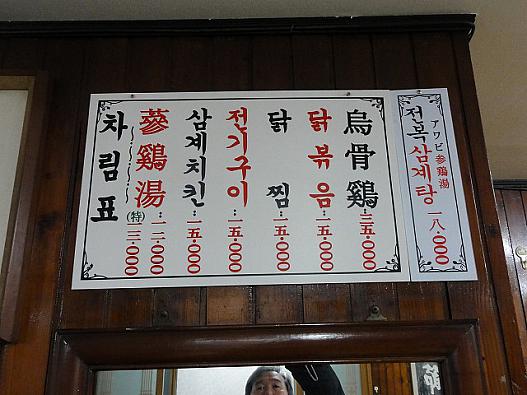 차림표
蔘鷄湯:一二.000
(特)一三.000
삼계치킨:一五.000
전기구이:一五.000
닭찜:一五.000
닭볶음:一五.000
烏骨鷄:三五.000
アワビ参鶏湯
전복삼계탕 一八.000